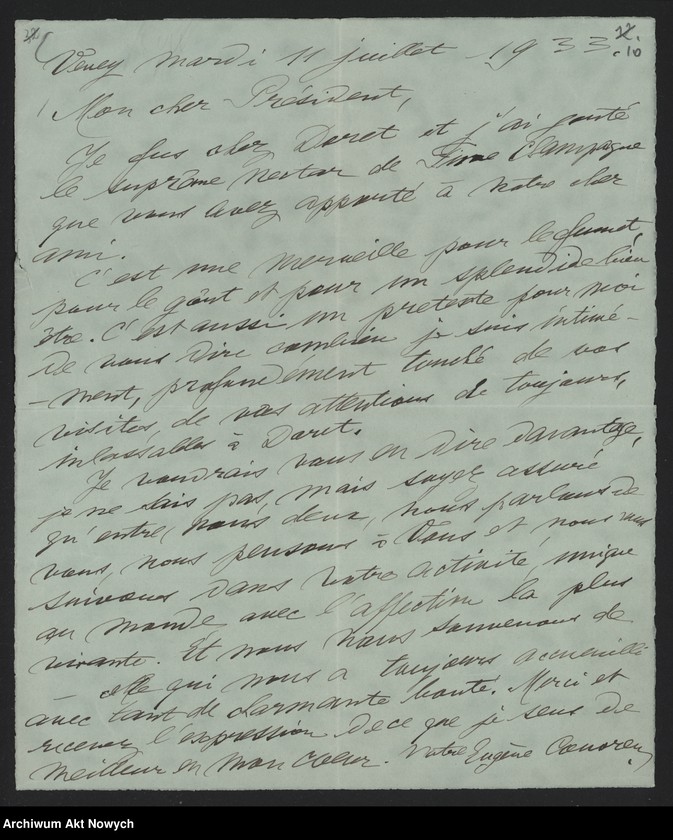 Vevey mardi 11 juillet 1933
22.
10
Mon cher Président,
Je fus chez Doret et j'ai goûté
le suprême nectar de Fine Champagne
que vous avez apporté à notre cher
ami.
C'est une merveille pour le fumet,
pour le goût et pour un splendide bien
être. C'est aussi un pretexte pour moi
de vous dire combien je suis intimé-
-ment, profondément touché de vos
visites, de vos attentions de toujours,
inlassables à Doret.
Je voudrais vous en dire davantage,
je ne sais pas, mais soyez assuré
qu'entre, nous deux, nous parlons de
vous, nous pensons à Vous et nous vous
suivons dans votre activité, unique
au monde avec l'affection la plus
vivante. Et nous nous souvenons de
– elle qui nous a toujours accueilli
avec tant de charmante bonté. Merci et
recevez l'expression de ce que je sens de
meilleur en mon coeur. Votre Eugène
Archiwum Akt Nowych